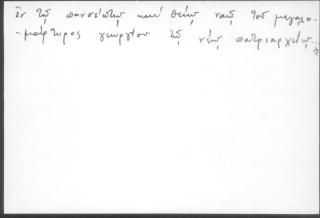 ἐν τῷ πανσέπτῳ καὶ θείῳ ναῷ τοῦ μεγαλο-
-μάρτυρος γεωργίου τῷ νέῳ πατριαρχείῳ...